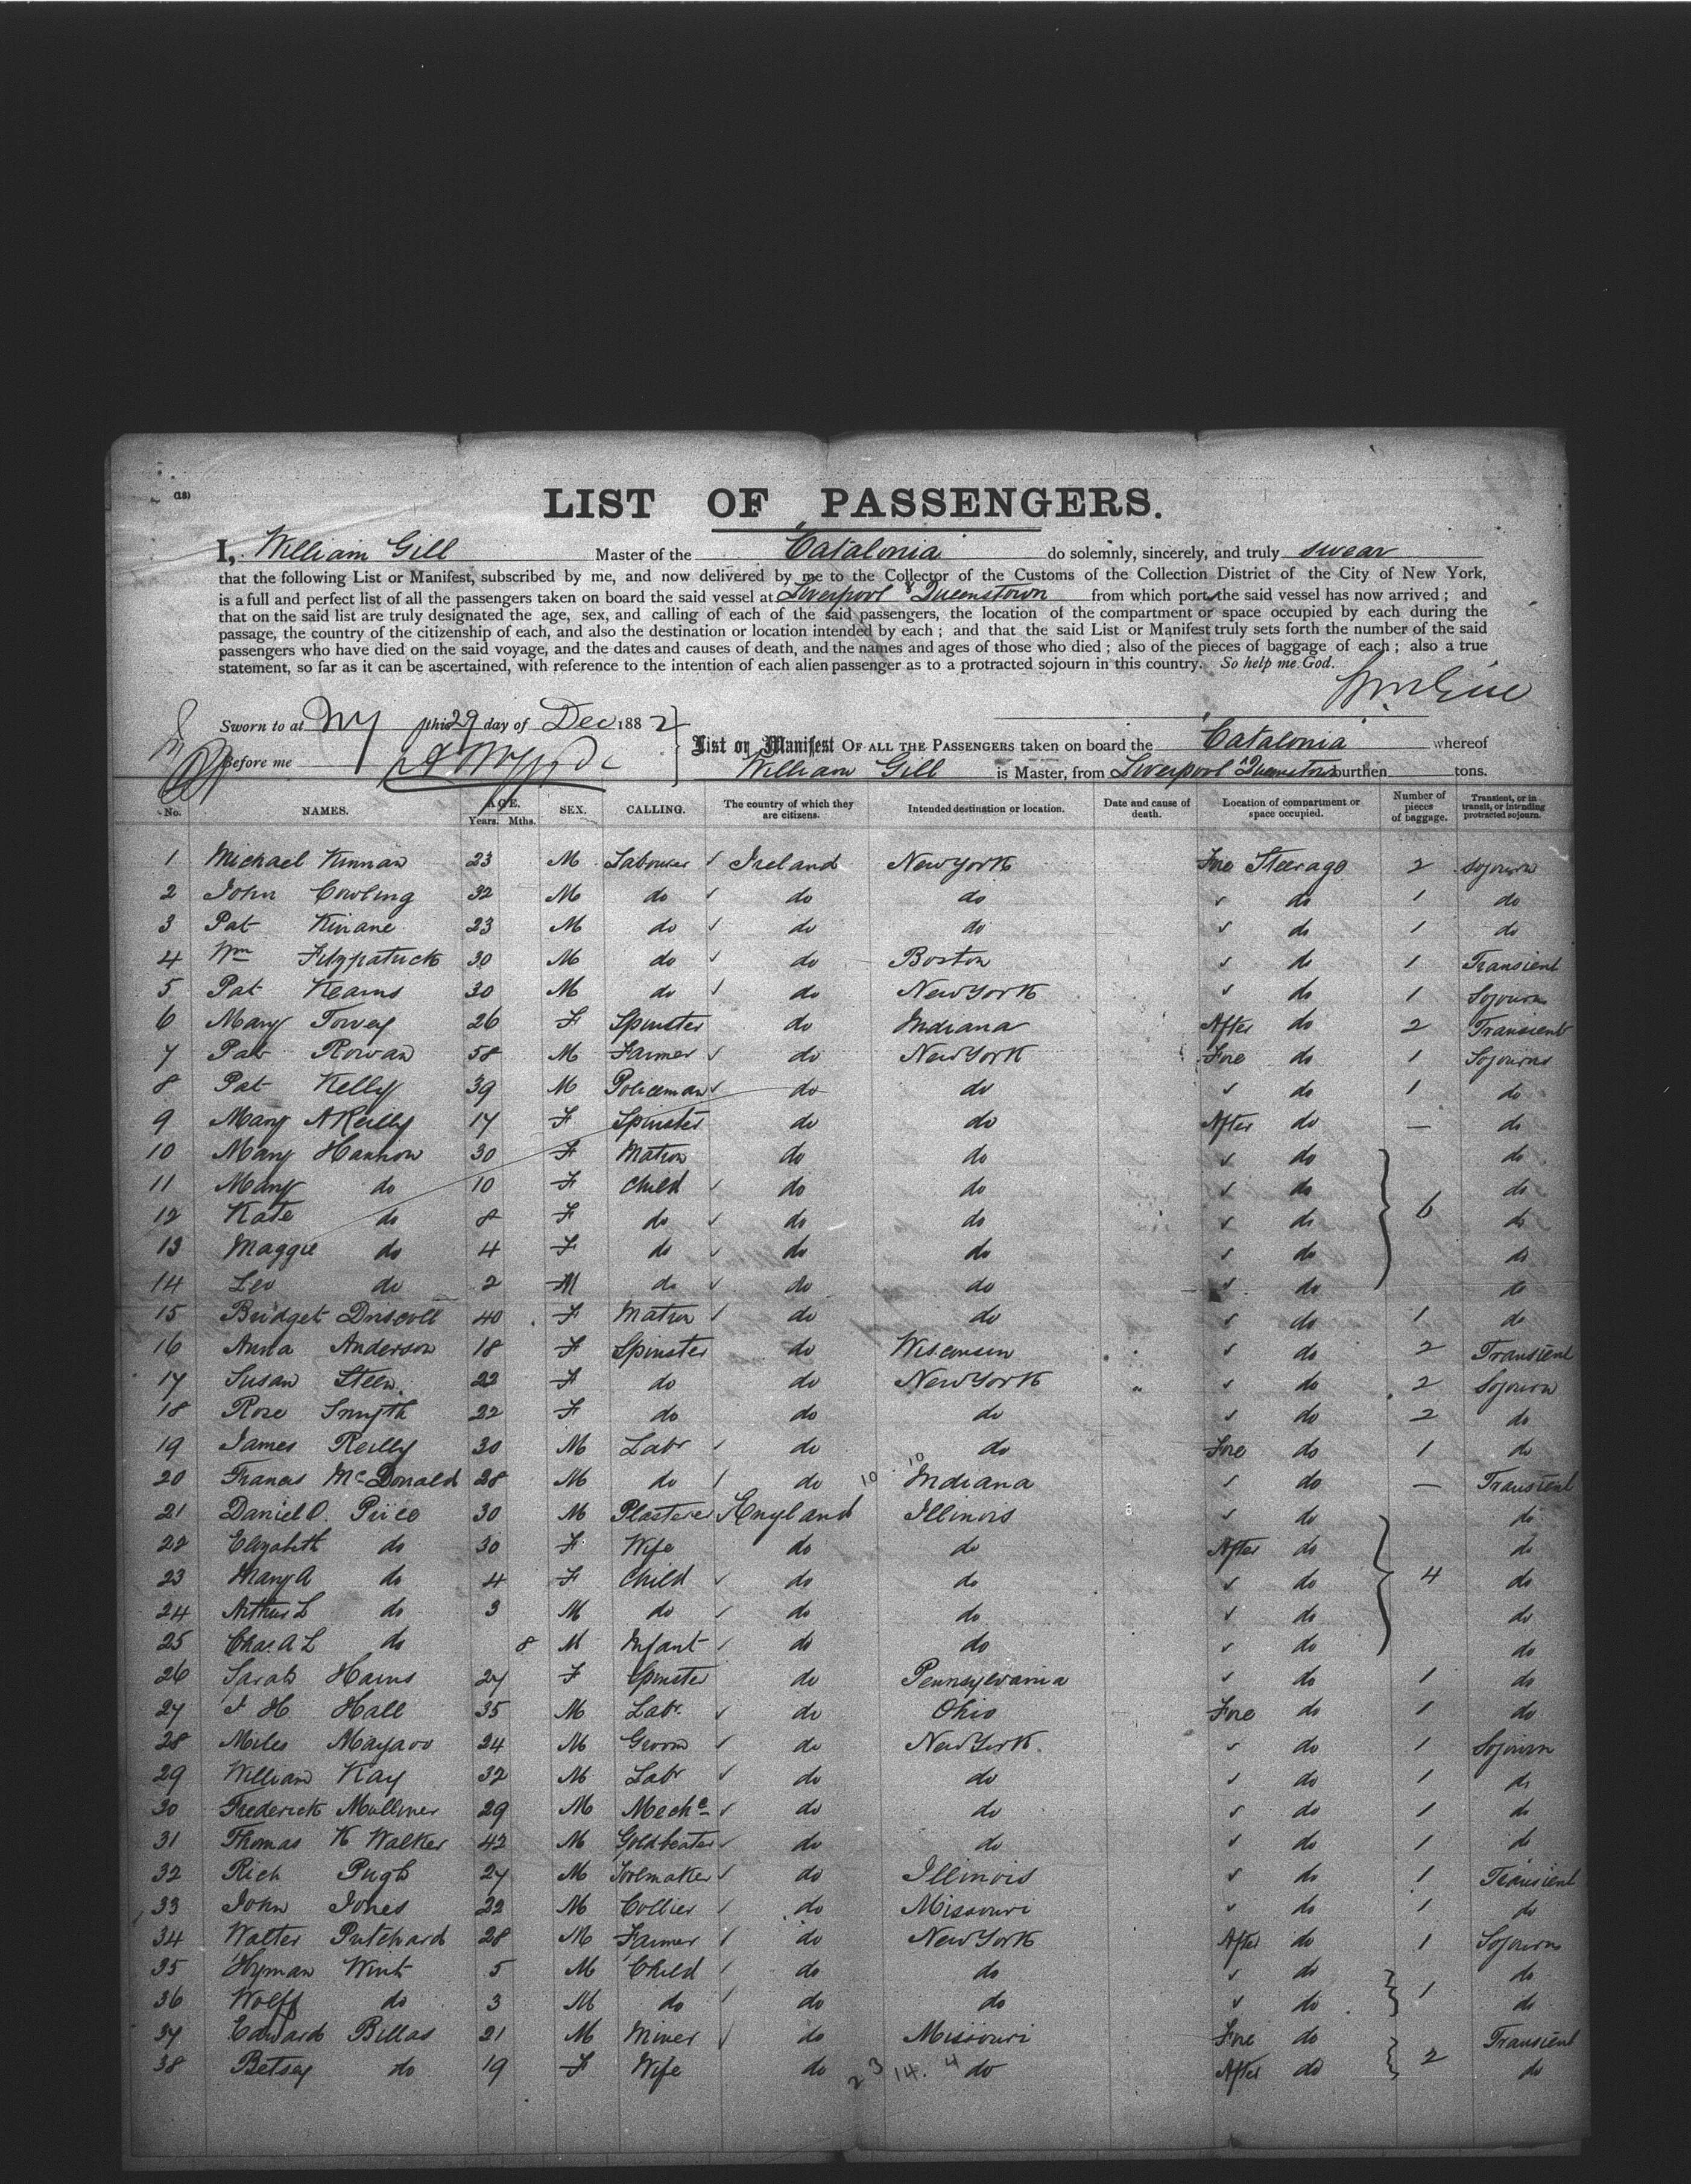 (18)
LIST OF PASSENGERS.
I, William Gill Master of the Catalonia do solemnly, sincerely, and truly swear
that the following List or Manifest, subscribed by me, and now delivered by me to the Collector of the Customs of the Collection District of the City of New York,
is a full and perfect list of all the passengers taken on board the said vessel at Liverpool & Queenstown from which port the said vessel has now arrived; and
that on the said list are truly designated the age, sex, and calling of each of the said passengers, the location of the compartment or space occupied by each during the
passage, the country of the citizenship of each, and also the destination or location intended by each; and that the said List or Manifest truly sets forth the number of the said
passengers who have died on the said voyage, and the dates and causes of death, and the names and ages of those who died; also of the pieces of baggage of each; also a true
statement, so far as it can be ascertained, with reference to the intention of each alien passenger as to a protracted sojourn in this country. So help me God.
Wm Gill
Sworn to at NY this 29 day of Dec 1882
Before me
List or Manifest OF ALL THE PASSENGERS taken on board the Catalonia whereof
William Gill is Master, from Liverpool & Queenstown burthen tons.
No. NAMES. AGE. Years. Mths. SEX. CALLING. The country of which they are citizens. Intended destination or location. Date and cause of death. Location of compartment or space occupied. Number of pieces of baggage. Transient, or in transit, or intending protracted sojourn.
1 Michael Kinnan 23 M Labourer Ireland New York Fore Steerage 2 Sojourn
2 John Cowling 32 M do do do do 1 do
3 Pat Kinane 23 M do do do do 1 do
4 Wm Fitzpatrick 30 M do do Boston do 1 Transient
5 Pat Kearns 30 M do do New York do 1 Sojourn
6 Mary Tovey 26 F Spinster do Indiana After do 2 Transient
7 Pat Rowan 58 M Farmer do New York Fore do 1 Sojourn
8 Pat Kelly 39 M Policeman do do do 1 do
9 Mary A Reilly 17 F Spinster do do After do — do
10 Mary Hannon 30 F Matron do do do do
11 Mary do 10 F Child do do do do
12 Kate do 8 F do do do do 6 do
13 Maggie do 4 F do do do do do
14 Leo do 2 M do do do do do
15 Bridget Driscoll 40 F Matron do do do 1 do
16 Anna Anderson 18 F Spinster do Wisconsin do 2 Transient
17 Susan Steen 22 F do do New York do 2 Sojourn
18 Rose Smyth 22 F do do do do 2 do
19 James Reilly 30 M Labr do do Fore do 1 do
20 Francis McDonald 28 M do do 10 10 Indiana do — Transient
21 Daniel O. Price 30 M Plasterer England Illinois do do
22 Elizabeth do 30 F Wife do do After do do
23 Mary A do 4 F Child do do do 4 do
24 Arthur L do 3 M do do do do do
25 Chas. A L do 8 M Infant do do do do
26 Sarah 27 F Spinster do Pennsylvania do 1 do
27 J H Hall 35 M Labr. do Ohio Fore do 1 do
28 Miles 24 M Groom do New York do 1 Sojourn
29 William Kay 32 M Labr do do do 1 do
30 Frederick Mulliner 29 M Mechc do do do 1 do
31 Thomas K Walker 42 M Goldbeater do do do 1 do
32 Rich Pugh 27 M Toolmaker do Illinois do 1 Transient
33 John Jones 22 M Collier do Missouri do 1 do
34 Walter Pritchard 28 M Farmer do New York After do 1 Sojourn
35 Hyman Wint 5 M Child do do do do
36 Wolff do 3 M do do do do 1 do
37 Edward Billas 21 M Miner do Missouri Fore do Transient
38 Betsey do 19 F Wife do 2 3 14. 4 do After do 2 do